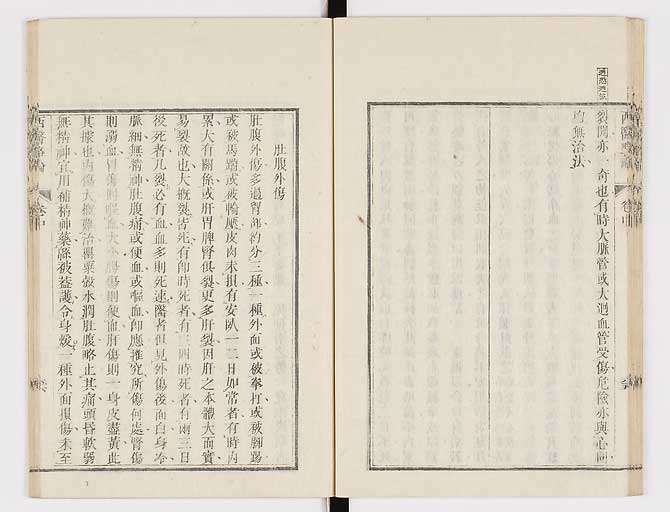 裂開亦一奇也有時大脈管或大迴血管受傷危險亦與心同
均無治法
西醫略論
卷中
肚腹外傷
肚腹外傷多過胷部約分三種一種外面或被拳打或被脚踢
或被馬踏或被輪壓皮肉未損有安臥一二日如常者有時內
累大有關係或肝胃脾腎俱裂更多肝裂因肝之本體大而實
易裂故也大槪裂皆死有卽時死者有三四時死者有兩三日
後死者凡裂必有血血多則死速醫者但見外傷後面白身冷
脈細無精神肚腹痛或便血或嘔血卽應推究所傷何處腎傷
則溺血胃傷則嘔血大小腸傷則便血肝傷則一身皮盡黃此
其據也內傷大槪難治罌粟殼水潤肚腹略止其痛頭昏軟弱
無精神宜用補精神藥綿被蓋護令身煖一種外面損傷未至
西醫略論
卷中